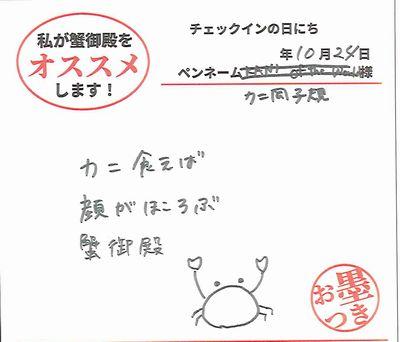 私が蟹御殿を
オススメ
します！
チェックインの日にち
年10月24日
ペンネーム KANI of the World 様
カニ岡子規
カニ食えば
顔がほころぶ
蟹御殿
お墨つき